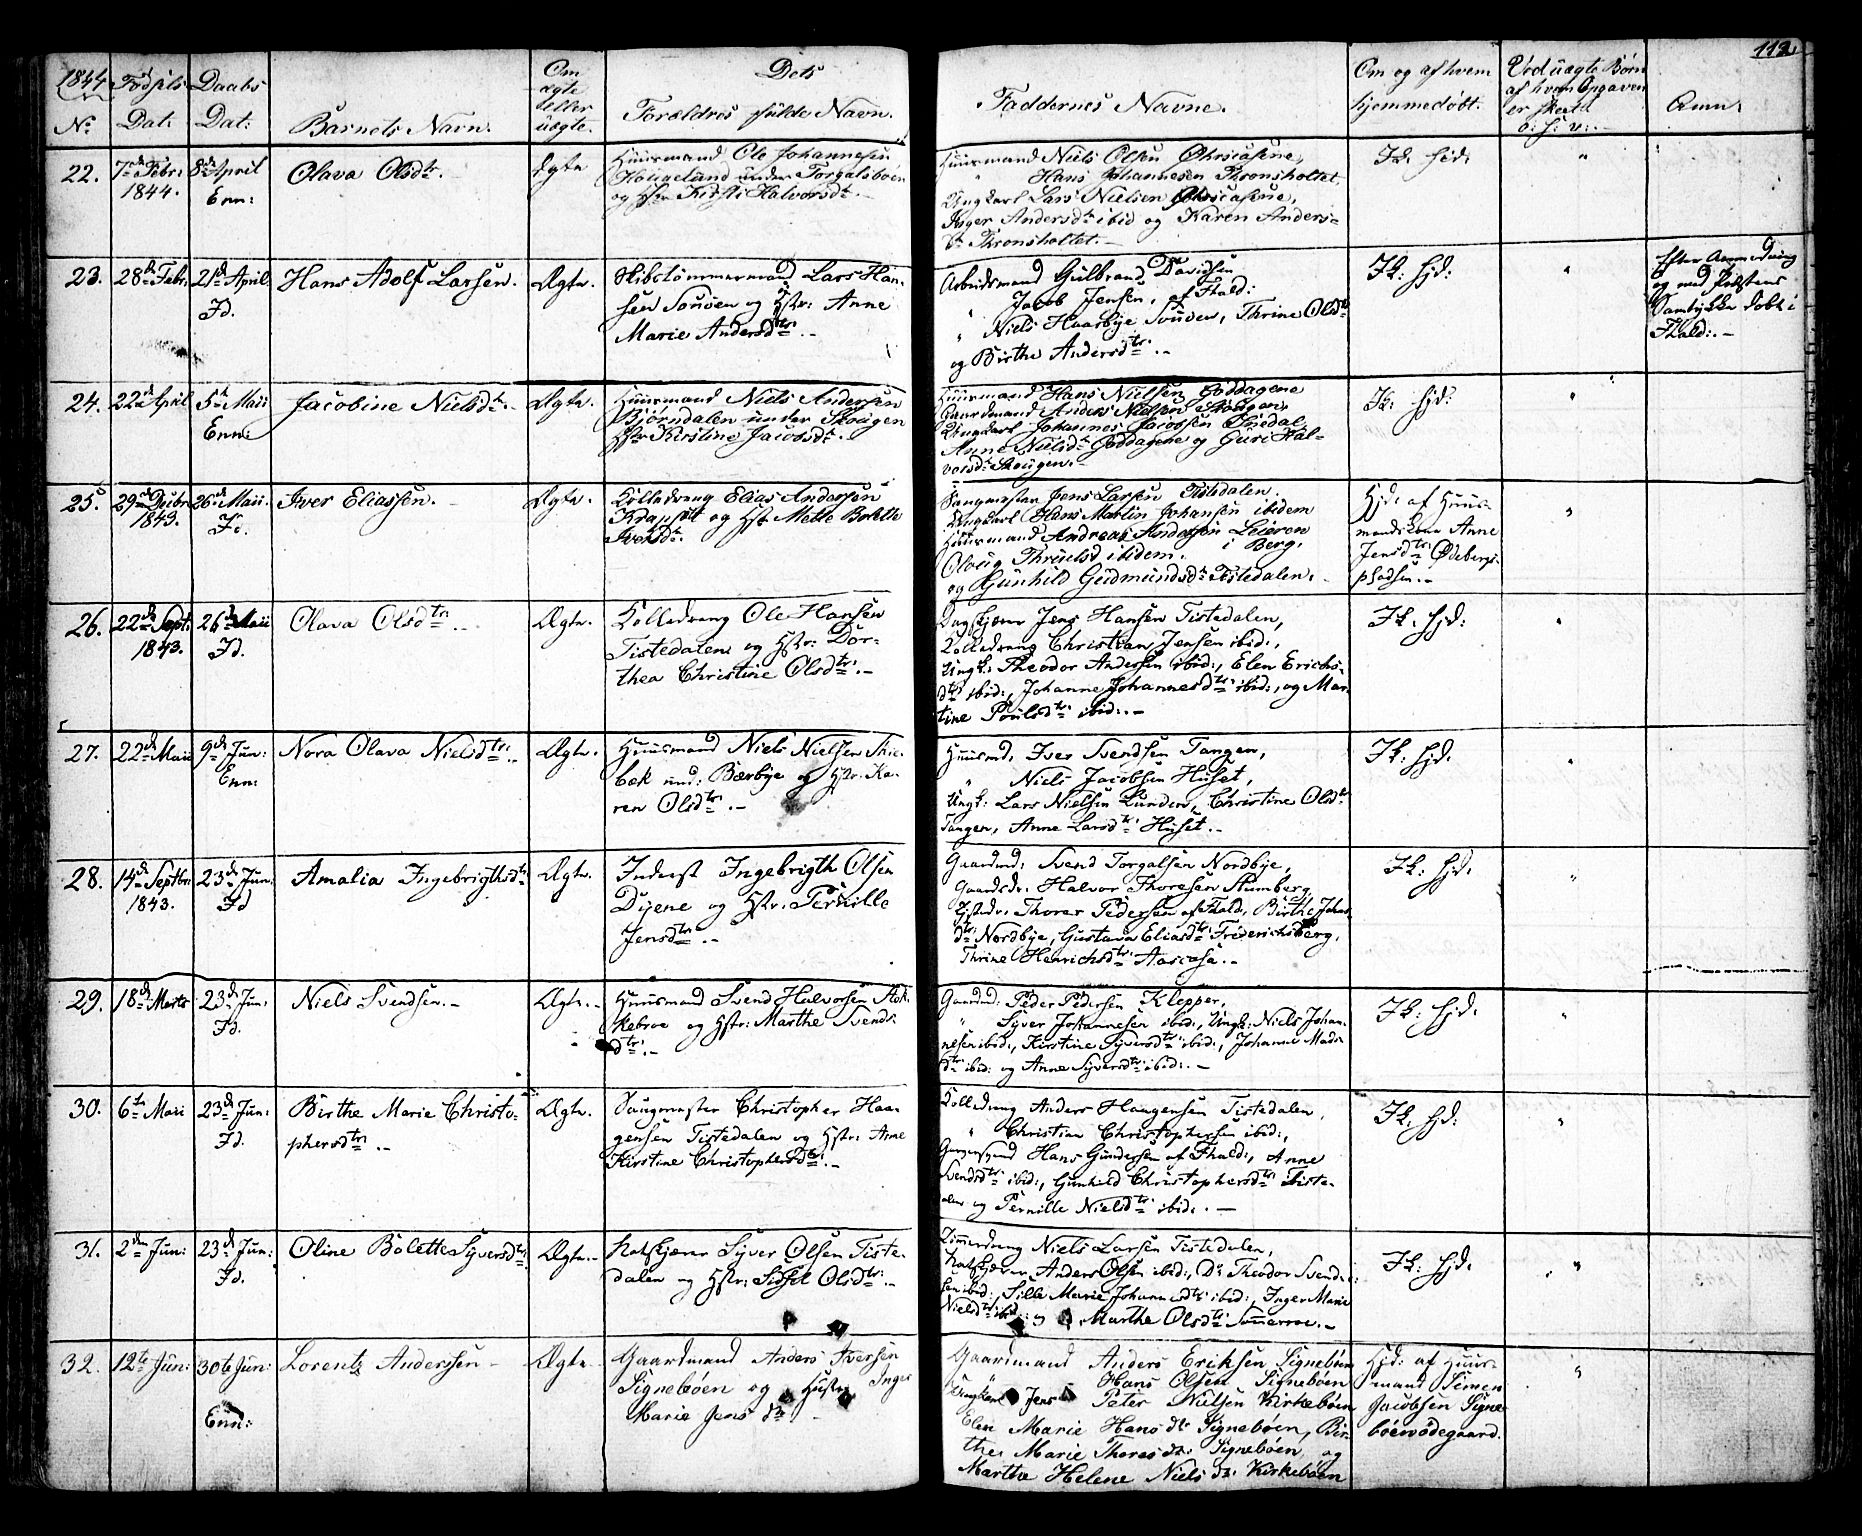 112
1844
No
Fødsels
Dat:
Daabs
Dat:
Barnets Navn.
Om
ægte
eller
uægte.
Dets
Forældres fulde Navn.
Faddernes Navne.
Om og af hvem
hjemmedøbt.
Ved uægte Børn
af hvem Opgaven
er skeed
o: s: v:
Anm:
22.
7de Febr:
1844.
8de April
Enn:
Olava Olsdtr.
Ægte
Huusmand Ole Johannesen
Haugelund under Torgalsboen
og Hstr Kirsti Halvorsdtr. -
Huusmand Niels Olsen
" Hans Johannesen Thronsholtet.
Ungkarl Lars Nielsen
Inger Andersdtr ibid og Karen Anders-
dtr Thronsholtet. -
Ik: Hjd:
"
23.
28de Febr:
21de April
Id.
Hans Adolf Larsen.
Ægte.
Skibstømmermand Lars Han-
sen og Hstr: Anne
Marie Andersdtr: -
Arbeidsmand Gulbrand Davidsen
" Jacob Jensen, af Fhald:
" Niels Haarbye Thrine Olsdtr
og Birthe Andersdtr: -
Ik: Hjd:
"
Efter Anmodning
og med Præstens
Samtykke døbt i
Fhald: -
24.
22de April
5te Maii
Enn:
Jacobine Nielsdtr.
Ægte.
Huusmand Niels Andersen
Bjørndalen under Skougen
Hstr Kirstine Jacobsdtr.
Huusmand Hans Nielsen Goddagene
Gaardmand Anders Nielsen Skougen,
Ungkarl Johannes Jacobsen
Anne Nielsdtr Goddagene og Guri Hal-
vorsdtr Skougen. -
Ik: Hjd:
"
25.
29de Decbr:
1843.
26de Maii.
Id.
Iver Eliassen.
Ægte.
Kolledreng Elias Andersen
og Hstr Mette Bolette
Iversdtr.
Saugmester Jens Larsen Tistedalen.
Ungkarl Hans Martin Johansen ibidem
Huusmand Andreas Andersen Leieren
i Berg.
Olaug Thruelsd ibidem.
og Gunhild Gudmundsdtr Tistedalen. -
Hjd: af Huus-
mandskone Anne
Jensdtr: Ødebergs-
pladsen. -
"
26.
22de Sept:
1843.
26de Maii
Id.
Olava Olsdtr:
Ægte.
Kolledreng Ole Hansen
Tistedalen og Hstr: Dor-
thea Christine Olsdtr: -
Dagskjærer Jens Hansen Tistedalen,
Kolledreng Christian Jensen ibid:,
Ungk: Theodor Andersen ibid:, Elen Erichs-
dtr: ibid:, Johanne Johannesdtr: ibid:, og Mar-
tine Poulsdtr: ibid: -
Ik: Hjd:
"
27.
22de Maii
9de Jun:
Enn:
Nora Olava Nielsdtr:
Ægte.
Huusmand Niels Nielsen Skie-
bæk und: Bærbye og Hstr: Ka-
ren Olsdtr: -
Huusmd: Iver Svendsen Tangen,
" Niels Jacobsen Huset,
Ungk: Lars Nielsen Lunden, Christine Olsdtr
Tangen, Anne Larsdtr: Huset. -
Ik: Hjd:
"
28.
14de Septbr:
1843.
23de Jun:
Id
Amalia Ingebrigthsdtr:
Ægte.
Inderst Ingebrigth Olsen
Dyene og Hstr: Pernille
Jensdtr: -
Gaardmd: Svend Torgalsen Nordbye,
Gaardsdr: Halvor Thoresen Stumberg,
Thorer Pedersen af Fhald:, Birthe Johan-
dtr: Nordbye, Gustava Eliasdtr: Friderichsberg,
Thrine Henrichsdtr: Aascasa. -
Ik: Hjd:
"
29.
18de Marts
23de Jun:
Id.
Niels Svendsen. -
Ægte.
Huusmand Svend Halvorsen Stok-
kebroe og Hstr: Marthe Svends-
dtr: -
Gaardmd: Peder Pedersen Klepper,
" Syver Johannesen ibid:, Ungk: Niels Johan-
nesen ibid:, Kirstine Syversdtr: ibid:, Johanne Mads-
dtr: ibid: og Anne Syversdtr: ibid: -
Ik: Hjd:
"
30.
6te Maii
23de Jun:
Id.
Birthe Marie Christo-
phersdtr:
Ægte.
Saugmester Christopher Haa-
gensen Tistedalen og Hstr: Anne
Kirstine Christophersdtr: -
Kolledreng Anders Haagensen Tistedalen,
" Christian Christophersen ibid:,
Hans Gundersen af Fhald:, Anne
Svendsdtr: ibid:, Gunhild Christophersdtr: Tiste-
dalen og Pernille Nielsdtr: ibid: -
Ik: Hjd:
"
31.
2den Jun:
23de Jun:
Id.
Oline Bolette Syversdtr:
Ægte.
Natskjærer Syver Olsen Tiste-
dalen og Hstr: Sidsel Olsdtr: -
Tømmerdreng Niels Larsen Tistedalen,
Natskjærer Anders Olsen ibid:, Do Theodor Svend-
sen ibid:, Sille Marie Johannesdtr: ibid:, Inger Marie
Nielsdtr: ibid: og Marthe Olsdtr: -
Ik: Hjd:
"
32.
12te Jun:
30te Jun:
Enn:
Lorentz Andersen -
Ægte
Gaardmand Anders Iversen
Signebøen og Hustr Inger
Marie Jens dtr -
Gaardmand Anders Eriksen Signebøen
" Hans Olsen Signebøen
Ungkarl Jens Peter Nielsen Kirkebøen
Elen Marie Hans dtr Signebøen, Bir-
the Marie Thores dtr: Signebøen og
Marthe Helene Niels dtr: Kirkebøen
Hjd: af Huus-
mand Simen
Jacobsen Signe-
bøenødegaard.
"